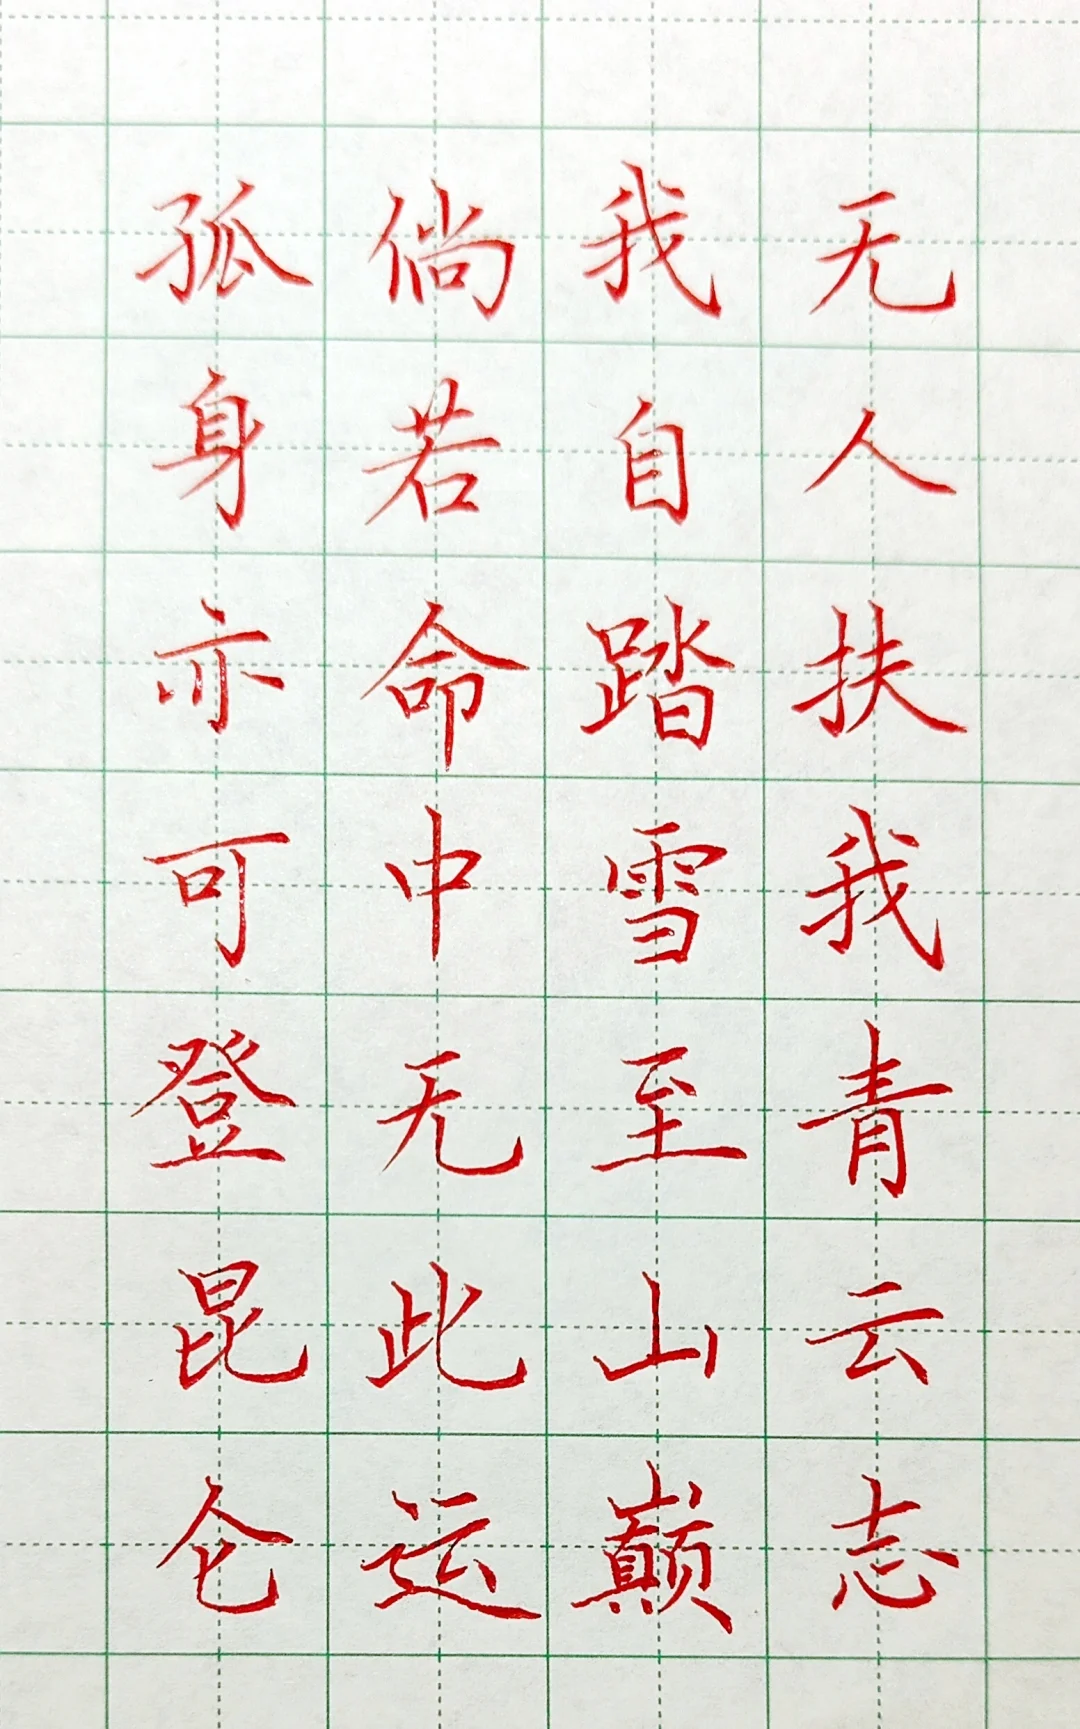 无人扶我青云志
我自踏雪至山巅
倘若命中无此运
孤身亦可登昆仑